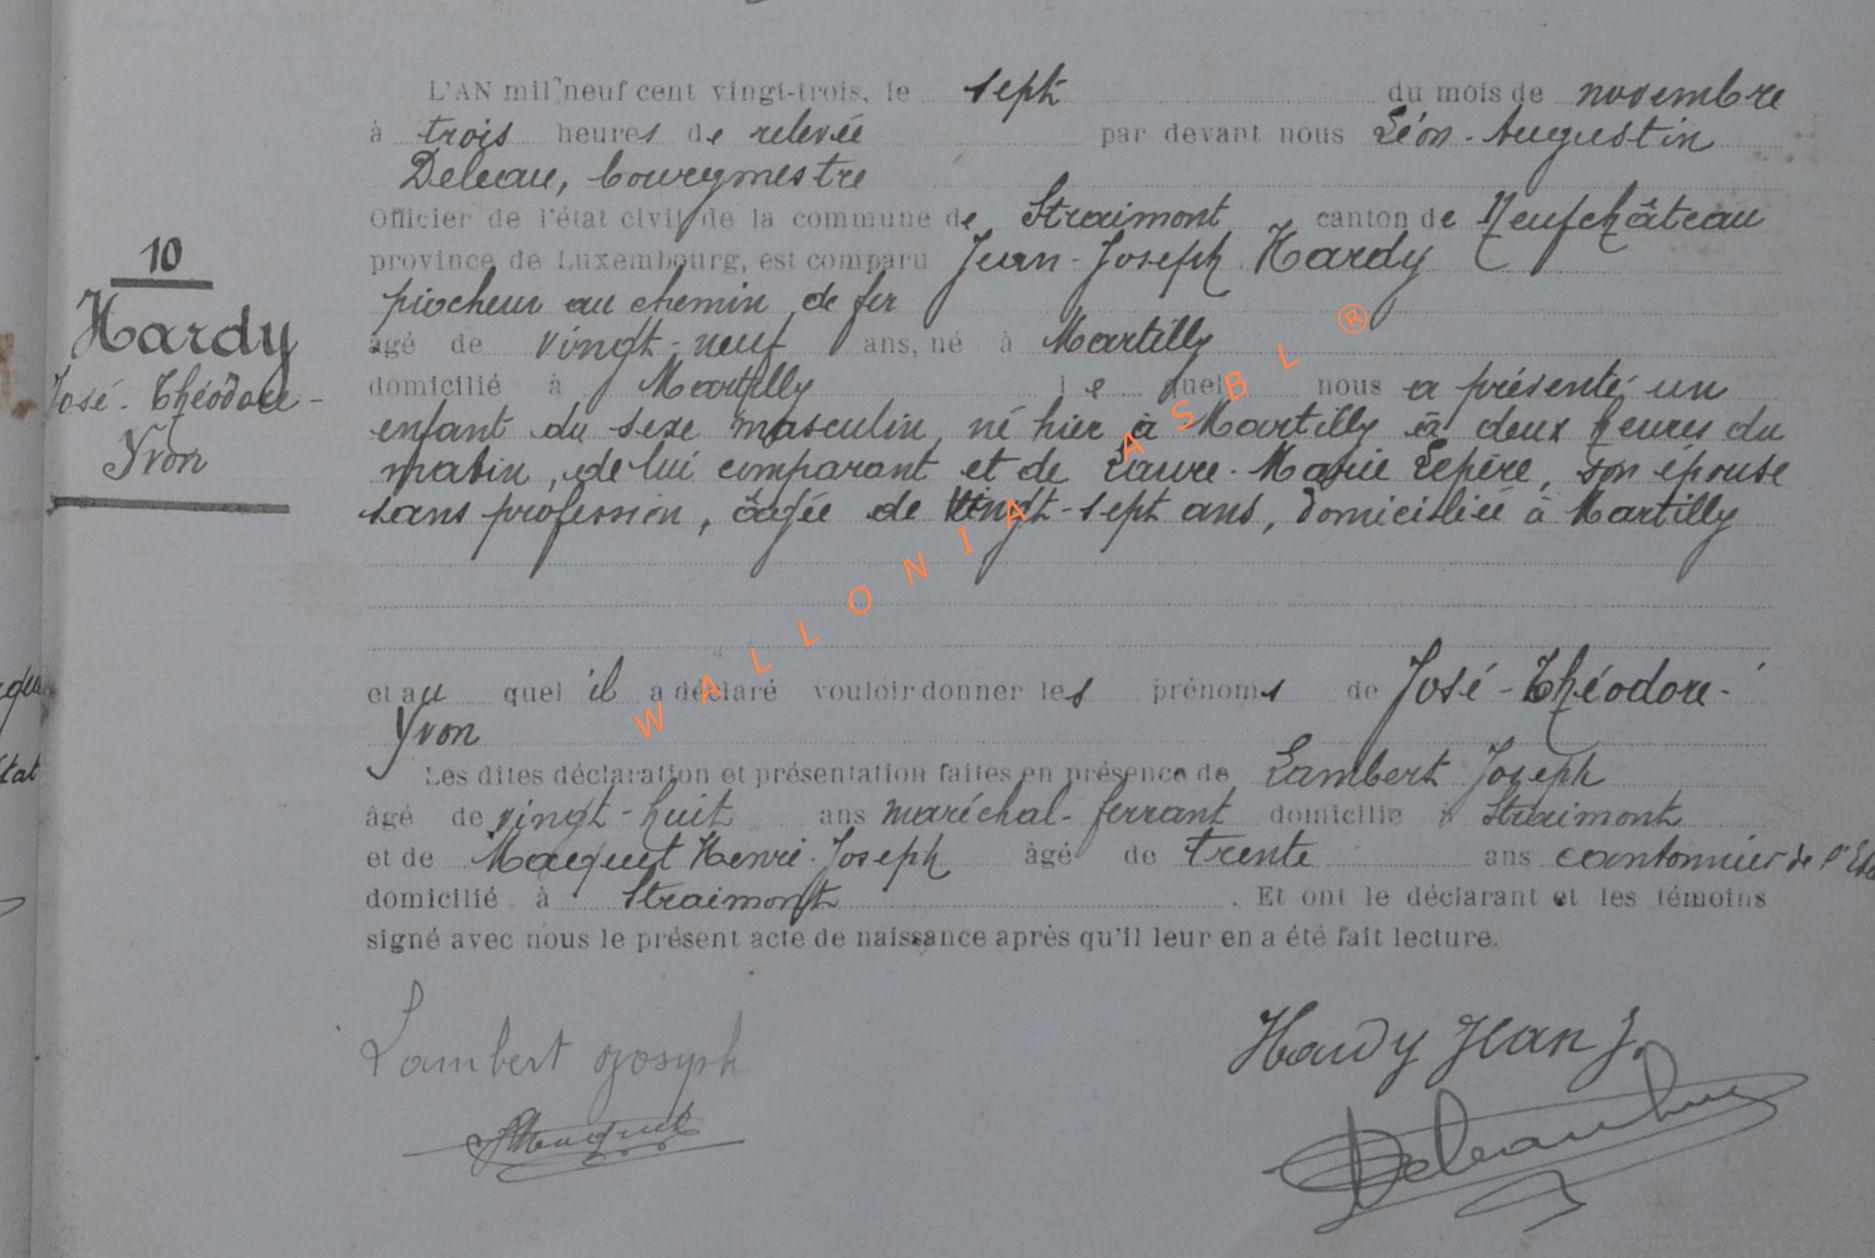 L'AN mil neuf cent vingt-trois, le sept du mois de novembre
à trois heures de relevée par devant nous Léon-Augustin
Deleau, bourgmestre
Officier de l'état civil de la commune de Straimont canton de Neufchâteau
province de Luxembourg, est comparu Jean-Joseph Hardy
piocheur au chemin de fer
âgé de vingt-neuf ans, né à Martilly
domicilié à Martilly lequel nous a présenté un
enfant du sexe masculin, né hier à Martilly à deux heures du
matin, de lui comparant et de Laure-Marie Lepère, son épouse
sans profession, âgée de vingt-sept ans, domiciliée à Martilly
10
Hardy
José-Théodore-
Yvon
et au quel il a déclaré vouloir donner les prénoms de José-Théodore-
Yvon
Les dites déclaration et présentation faites en présence de Lambert Joseph
âgé de vingt-huit ans maréchal-ferrant domicilié à Straimont
et de Maquet Henri-Joseph âgé de trente ans cantonnier de l'Eta
domicilié à Straimont. Et ont le déclarant et les témoins
signé avec nous le présent acte de naissance après qu'il leur en a été fait lecture.
Lambert Joseph
Hardy Jean J.
HMaquet
WALLONIA ASBL ®